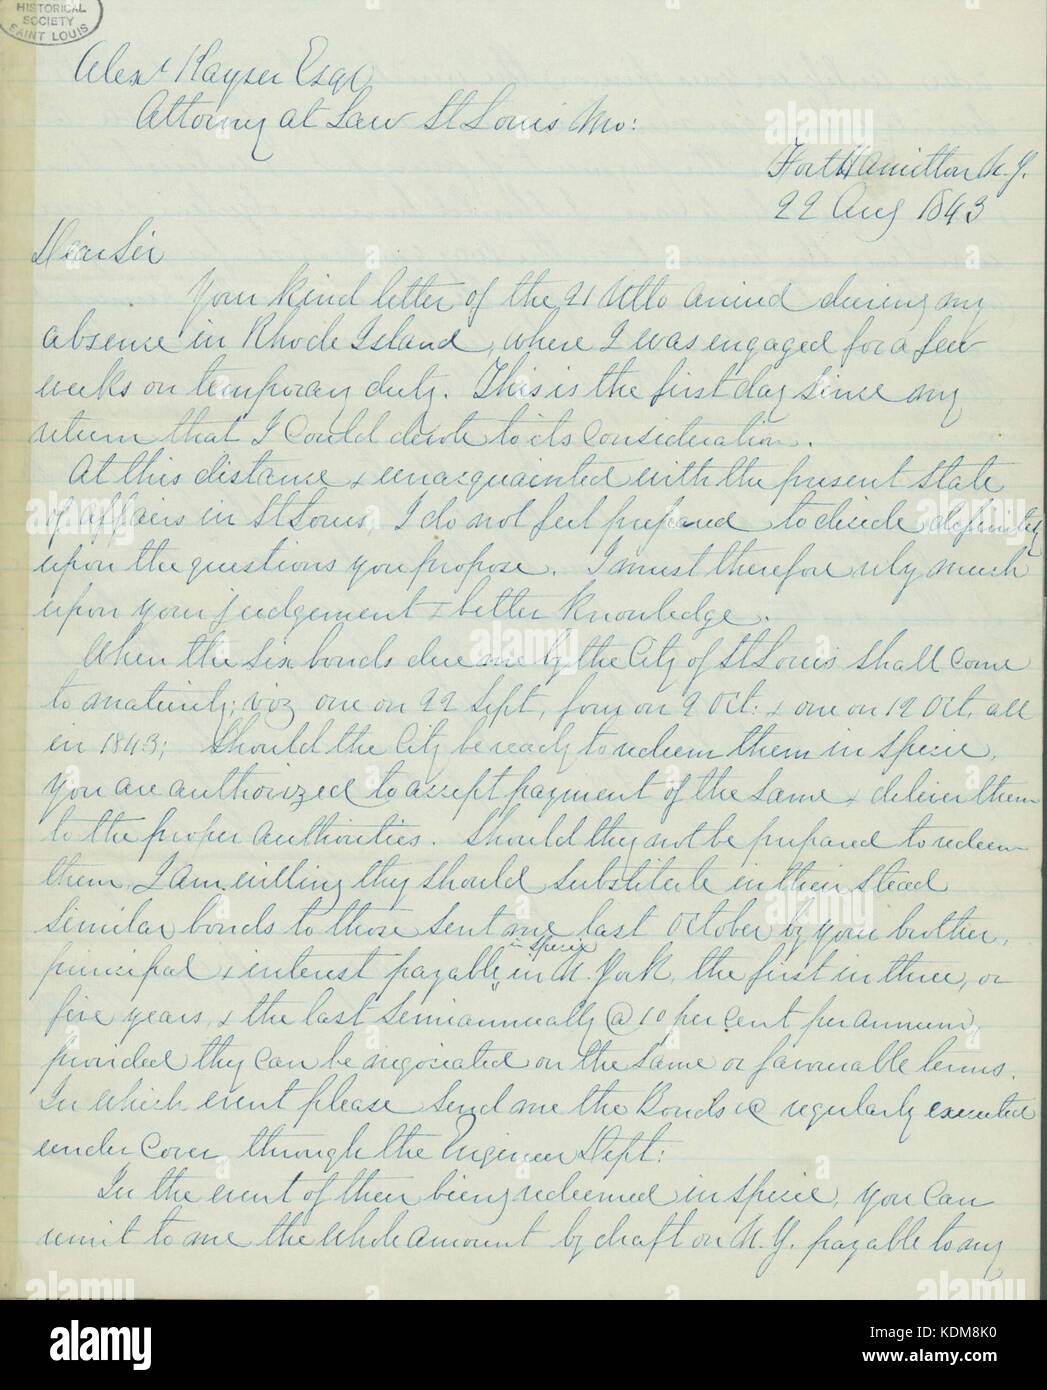 HISTORICAL
SOCIETY
SAINT LOUIS
Alexr Kayser Esqr
Attorney at Law St Louis Mo:
Fort Hamilton N.Y.
22 Aug 1843
Dear Sir
Your kind letter of the 21 Ulto arrived during my
absence in Rhode Island, where I was engaged for a few
weeks on temporary duty. This is the first day since my
return that I could devote to its consideration.
At this distance & unacquainted with the present state
of affairs in St Louis, I do not feel prepared to decide definitely
upon the questions you propose. I must therefore rely much
upon your judgement & better knowledge.
When the six bonds due me by the City of St Louis shall come
to maturity; viz one on 22 Sept, four on 9 Oct: & one on 12 Oct, all
in 1843; Should the City be ready to redeem them in specie,
you are authorized to accept payment of the same & deliver them
to the proper authorities. Should they not be prepared to redeem
them, I am willing they should substitute in their stead
similar bonds to those sent me last October by your brother,
principal & interest payable in specie in N. York, the first in three, or
five years, & the last semiannually @ 10 per cent per annum,
provided they can be negociated on the same or favourable terms.
In which event please send me the Bonds &c regularly executed
under cover through the Engineer Dept:
In the event of their being redeemed in specie, you can
remit to me the whole amount by draft on N.Y. payable to my
alamy
Image ID: KDM8K0
www.alamy.com